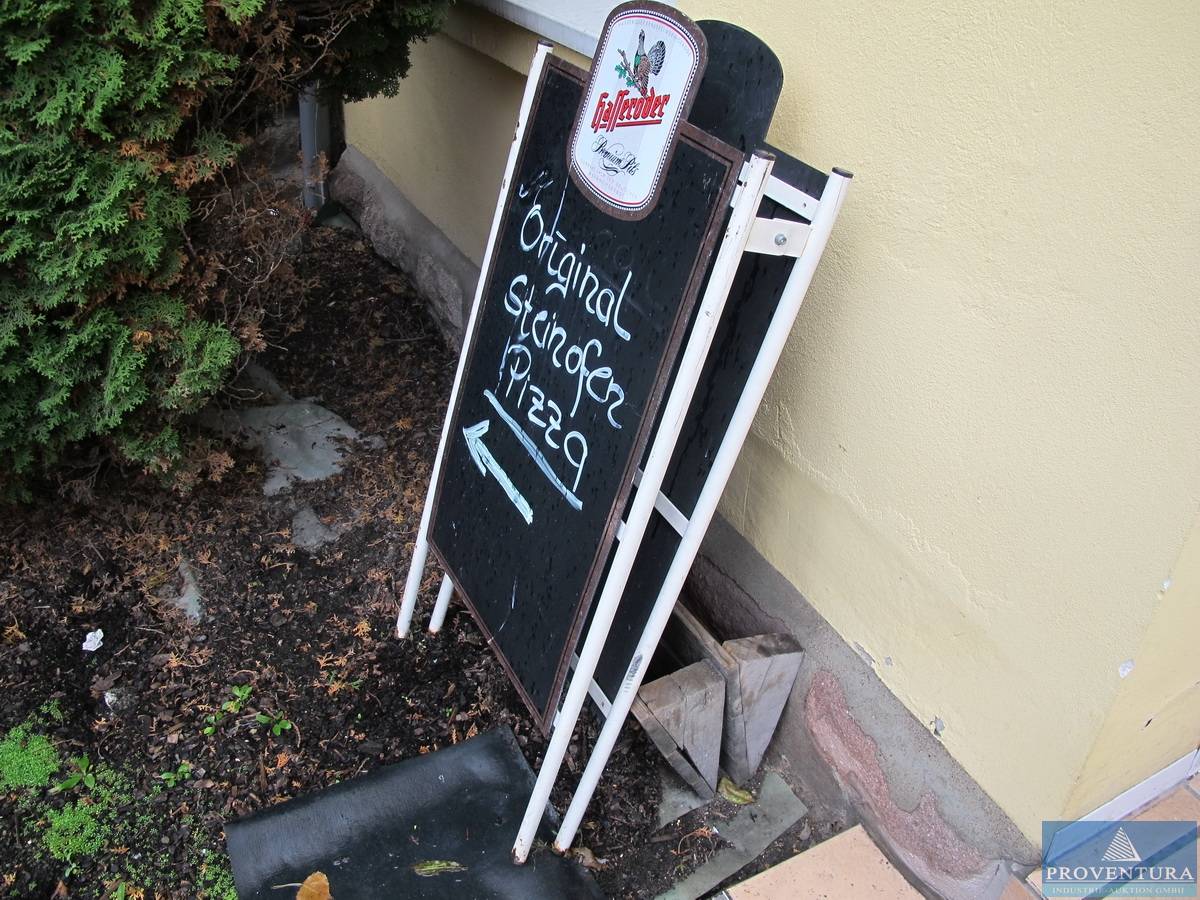 Hasseröder
Premium Pils
Original
Steinofen
Pizza
PROVENTURA
INDUSTRIE-AUKTION GMBH